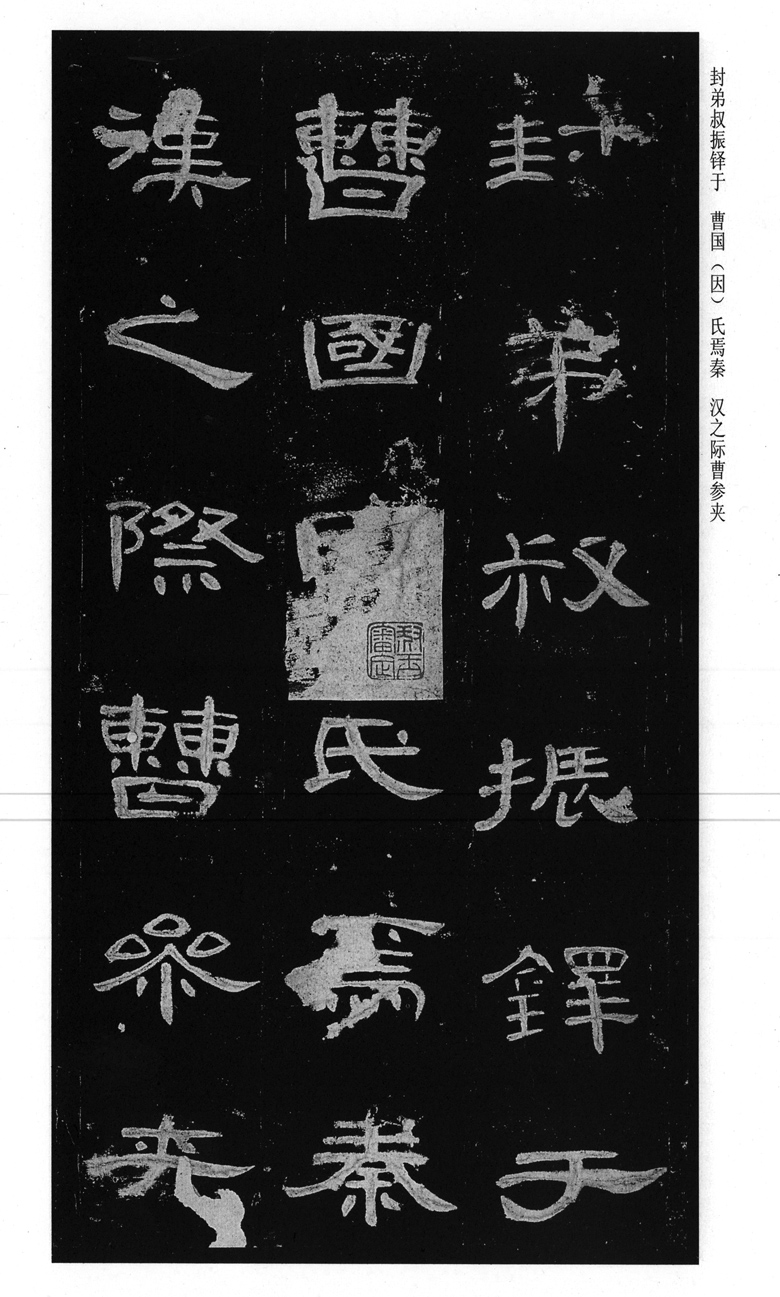 封弟叔振铎于 曹国（因）氏焉秦 汉之际曹参夹
封弟叔振鐸于
曹國氏焉秦
漢之際曹參夾